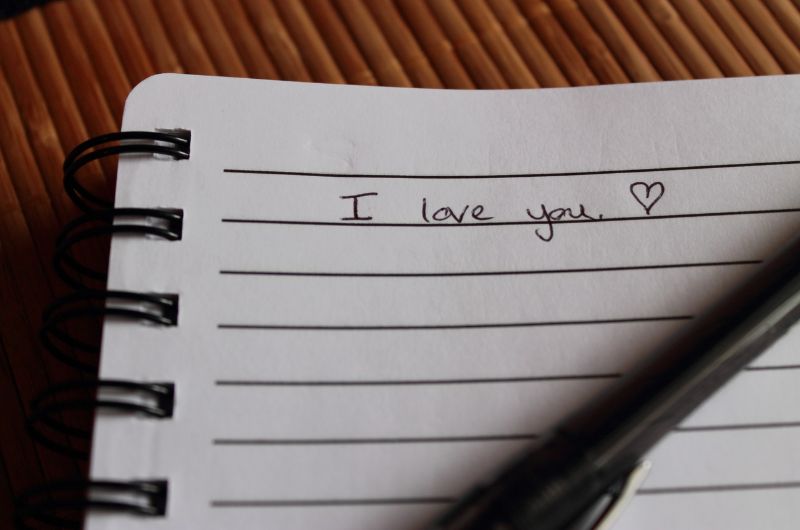 I love you. ♡